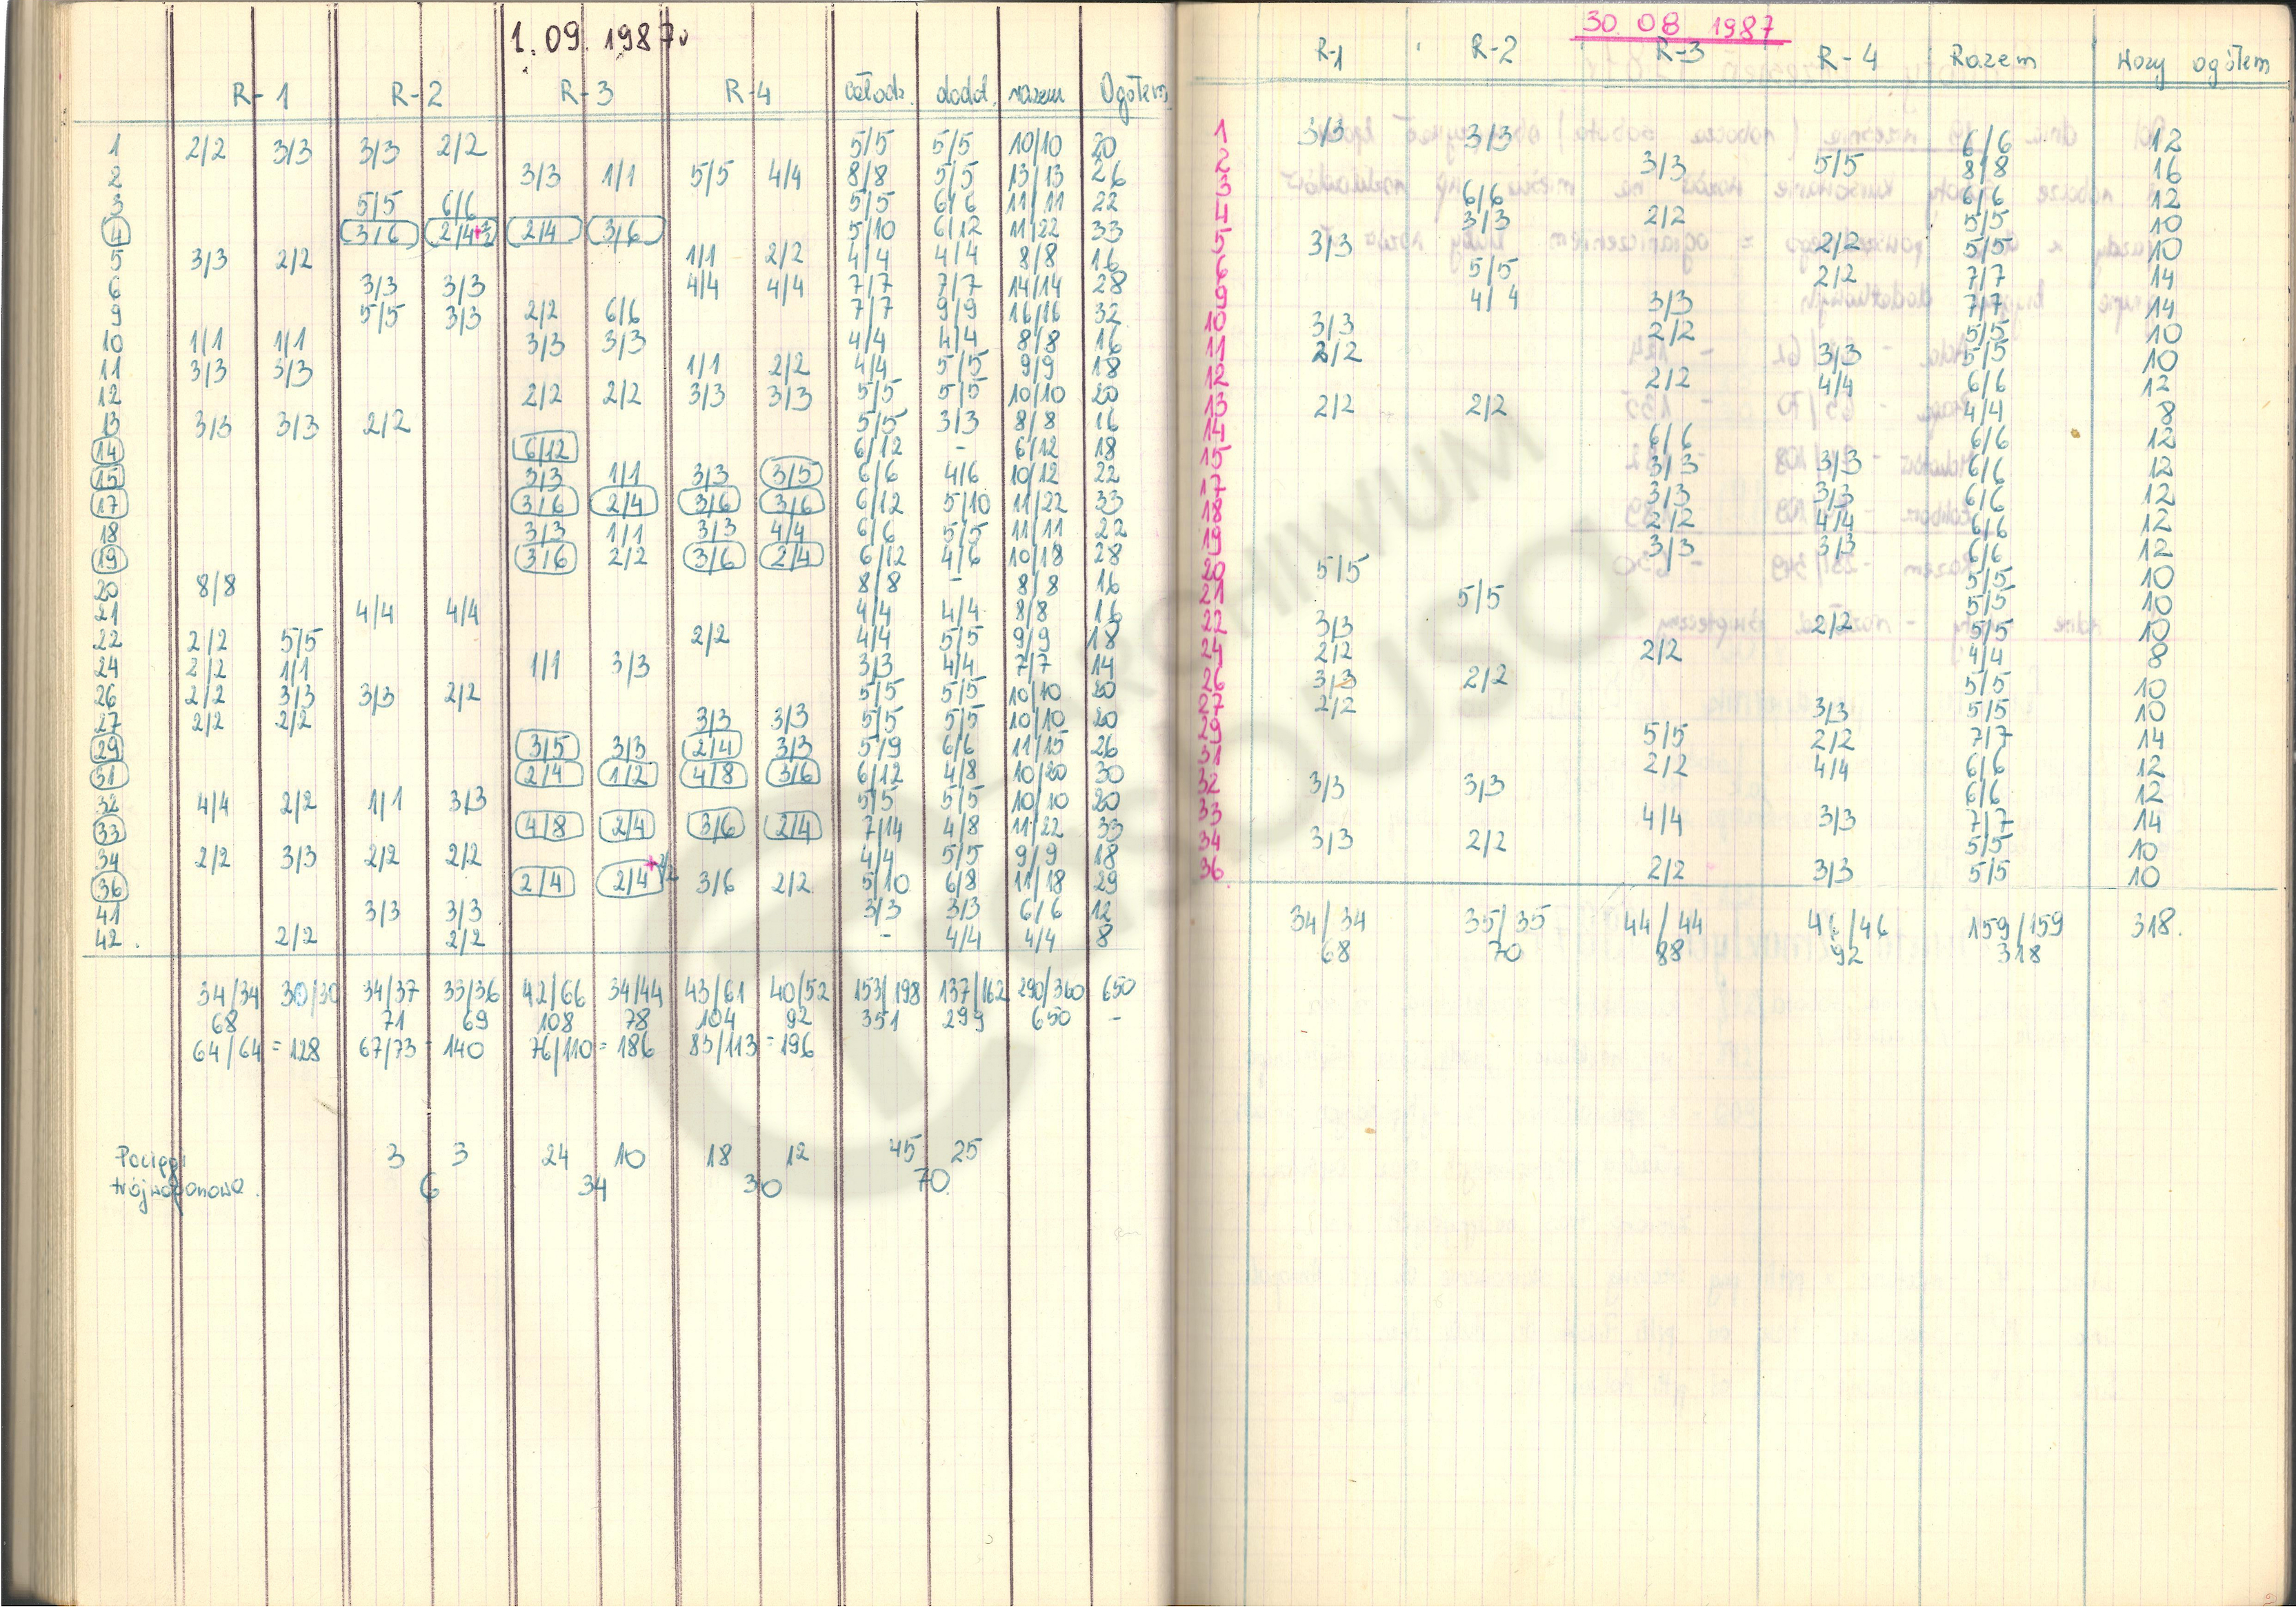 1. 09. 1987r
R-1 R-2 R-3 R-4 całodz. dodat. razem Ogółem
1 2/2 3/3 3/3 2/2 5/5 5/5 10/10 20
2 3/3 1/1 5/5 4/4 8/8 5/5 13/13 26
3 5/5 6/6 5/5 6/6 11/11 22
4 3/6 2/4 +2/2 2/4 3/6 5/10 6/12 11/22 33
5 3/3 2/2 1/1 2/2 4/4 4/4 8/8 16
6 3/3 3/3 4/4 4/4 7/7 7/7 14/14 28
9 5/5 3/3 2/2 6/6 7/7 9/9 16/16 32
10 1/1 1/1 3/3 3/3 4/4 4/4 8/8 16
11 3/3 3/3 1/1 2/2 4/4 5/5 9/9 18
12 2/2 2/2 3/3 3/3 5/5 5/5 10/10 20
13 3/3 3/3 2/2 5/5 3/3 8/8 16
14 6/12 6/12 - 6/12 18
15 3/3 1/1 3/3 3/5 6/6 4/6 10/12 22
17 3/6 2/4 3/6 3/6 6/12 5/10 11/22 33
18 3/3 1/1 3/3 4/4 6/6 5/5 11/11 22
19 3/6 2/2 3/6 2/4 6/12 4/6 10/18 28
20 8/8 8/8 - 8/8 16
21 4/4 4/4 4/4 4/4 8/8 16
22 2/2 5/5 2/2 4/4 5/5 9/9 18
24 2/2 1/1 1/1 3/3 3/3 4/4 7/7 14
26 2/2 3/3 3/3 2/2 5/5 5/5 10/10 20
27 2/2 2/2 3/3 3/3 5/5 5/5 10/10 20
29 3/5 3/3 2/4 3/3 5/9 6/6 11/15 26
31 2/4 1/2 4/8 3/6 6/12 4/8 10/20 30
32 4/4 2/2 1/1 3/3 5/5 5/5 10/10 20
33 4/8 2/4 3/6 2/4 7/14 4/8 11/22 33
34 2/2 3/3 2/2 2/2 4/4 5/5 9/9 18
36 2/4 2/4 +2/2 3/6 2/2 5/10 6/8 11/18 29
41 3/3 3/3 3/3 3/3 6/6 12
42. 2/2 2/2 - 4/4 4/4 8
34/34 30/30 34/37 33/36 42/66 34/44 43/61 40/52 153/198 137/162 290/360 650
68 71 69 108 78 104 92 351 299 650 -
64/64 = 128 67/73 = 140 76/110 = 186 83/113 = 196
Pociągi 3 3 24 10 18 12 45 25
trójwagonowe. 6 34 30 70.
30. 08 1987
R-1 R-2 R-3 R-4 Razem Wozy ogółem
1 3/3 3/3 6/6 12
2 3/3 5/5 8/8 16
3 6/6 6/6 12
4 3/3 2/2 5/5 10
5 3/3 2/2 5/5 10
6 5/5 2/2 7/7 14
9 4/4 3/3 7/7 14
10 3/3 2/2 5/5 10
11 2/2 3/3 5/5 10
12 2/2 4/4 6/6 12
13 2/2 2/2 4/4 8
14 6/6 6/6 12
15 3/3 3/3 6/6 12
17 3/3 3/3 6/6 12
18 2/2 4/4 6/6 12
19 3/3 3/3 6/6 12
20 5/5 5/5 10
21 5/5 5/5 10
22 3/3 2/2 5/5 10
24 2/2 2/2 4/4 8
26 3/3 2/2 5/5 10
27 2/2 3/3 5/5 10
29 5/5 2/2 7/7 14
31 2/2 4/4 6/6 12
32 3/3 3/3 6/6 12
33 4/4 3/3 7/7 14
34 3/3 2/2 5/5 10
36 2/2 3/3 5/5 10
34/34 35/35 44/44 46/46 159/159 318.
68 70 88 92 318